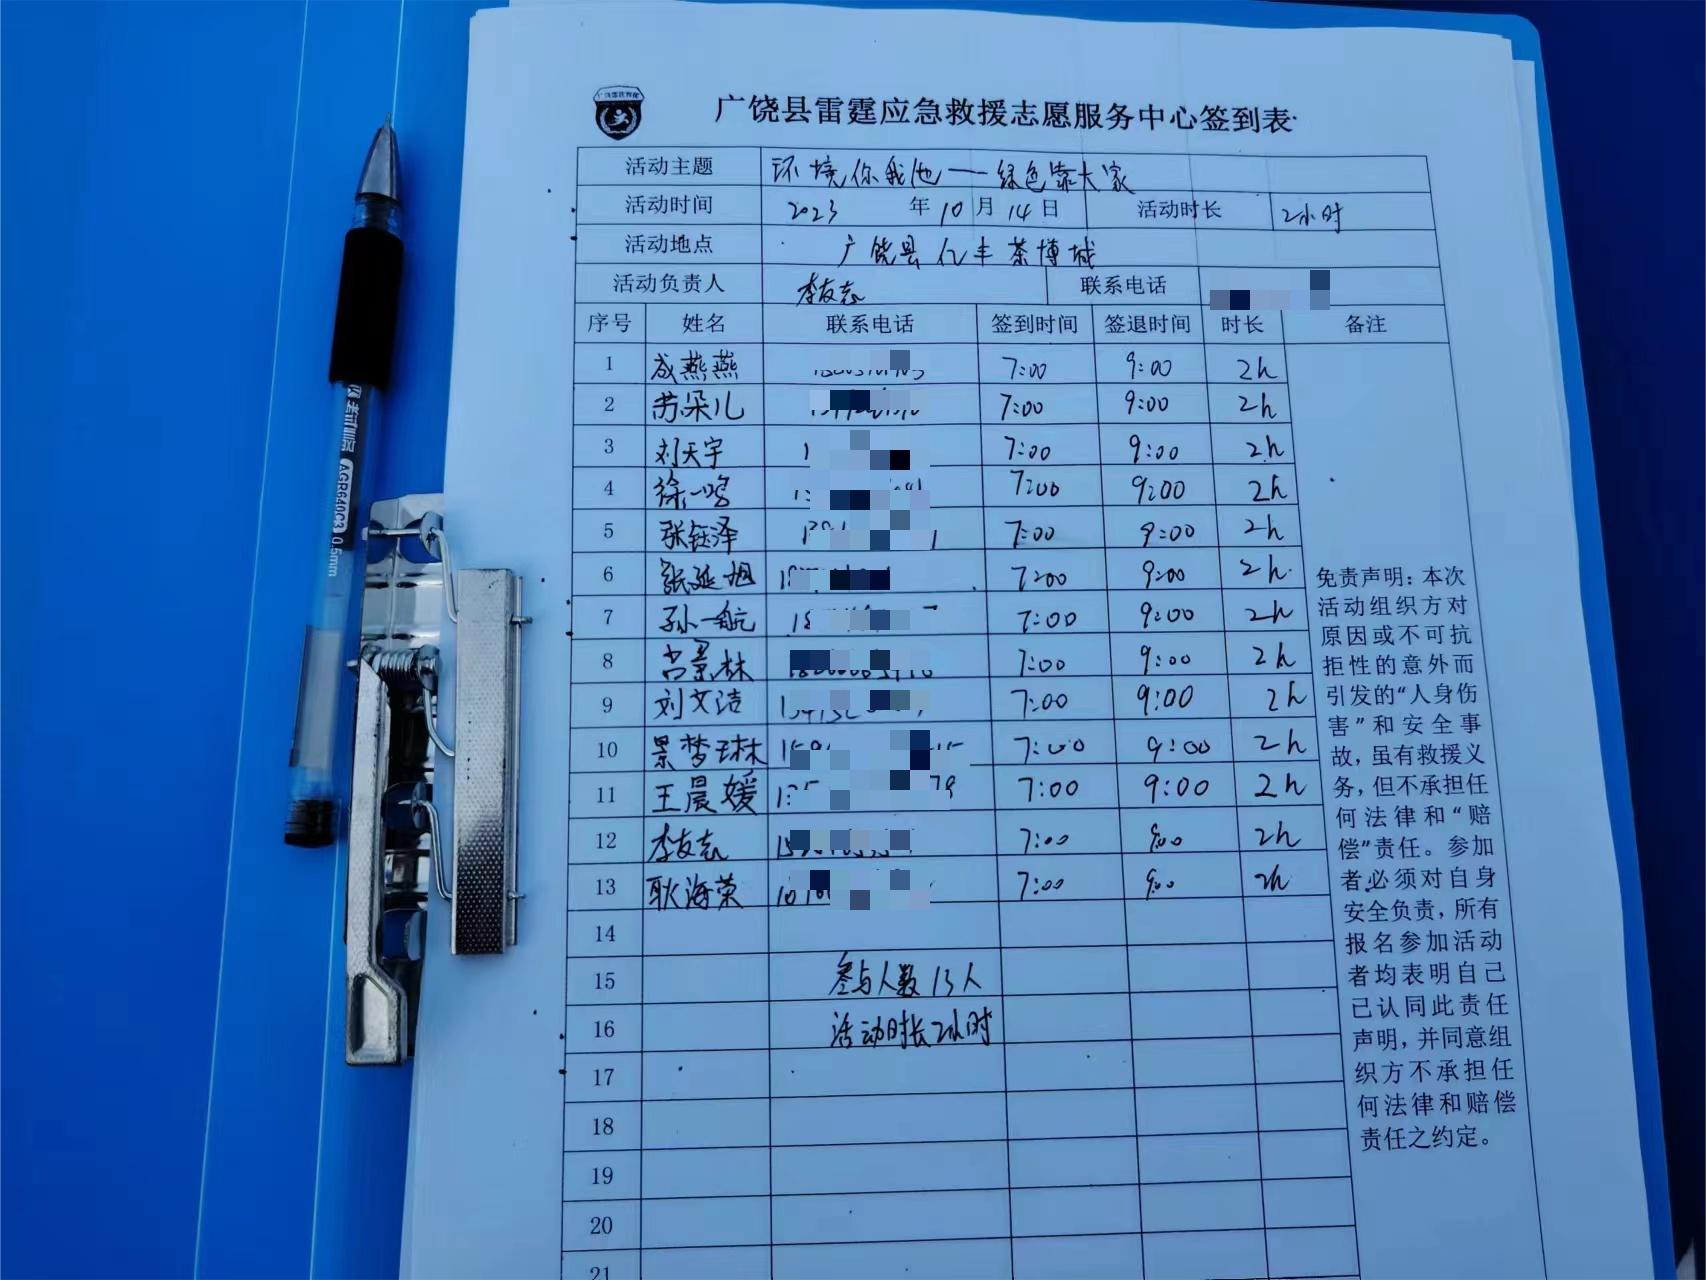 广饶县雷霆应急救援志愿服务中心签到表
活动主题 环境你我他——绿色靠大家
活动时间 2023 年 10 月 14 日 活动时长 2小时
活动地点 广饶县亿丰茶博城
活动负责人 李友志 联系电话
序号 姓名 联系电话 签到时间 签退时间 时长 备注
1 成燕燕 7:00 9:00 2h
2 苏朵儿 7:00 9:00 2h
3 刘天宇 7:00 9:00 2h
4 徐一鸣 7:00 9:00 2h
5 张钰泽 7:00 9:00 2h
6 张延旭 7:00 9:00 2h
7 孙一航 7:00 9:00 2h
8 景林 7:00 9:00 2h
9 刘文洁 7:00 9:00 2h
10 景梦琳 7:00 9:00 2h
11 王晨媛 7:00 9:00 2h
12 李友志 7:00 9:00 2h
13 耿海荣 7:00 9:00 2h
14
15 参与人数13人
16 活动时长2小时
17
18
19
20
21
免责声明：本次
活动组织方对
原因或不可抗
拒性的意外而
引发的“人身伤
害”和安全事
故，虽有救援义
务，但不承担任
何法律和“赔
偿”责任。参加
者必须对自身
安全负责，所有
报名参加活动
者均表明自己
已认同此责任
声明，并同意组
织方不承担任
何法律和赔偿
责任之约定。
AGR640C3 0.5mm